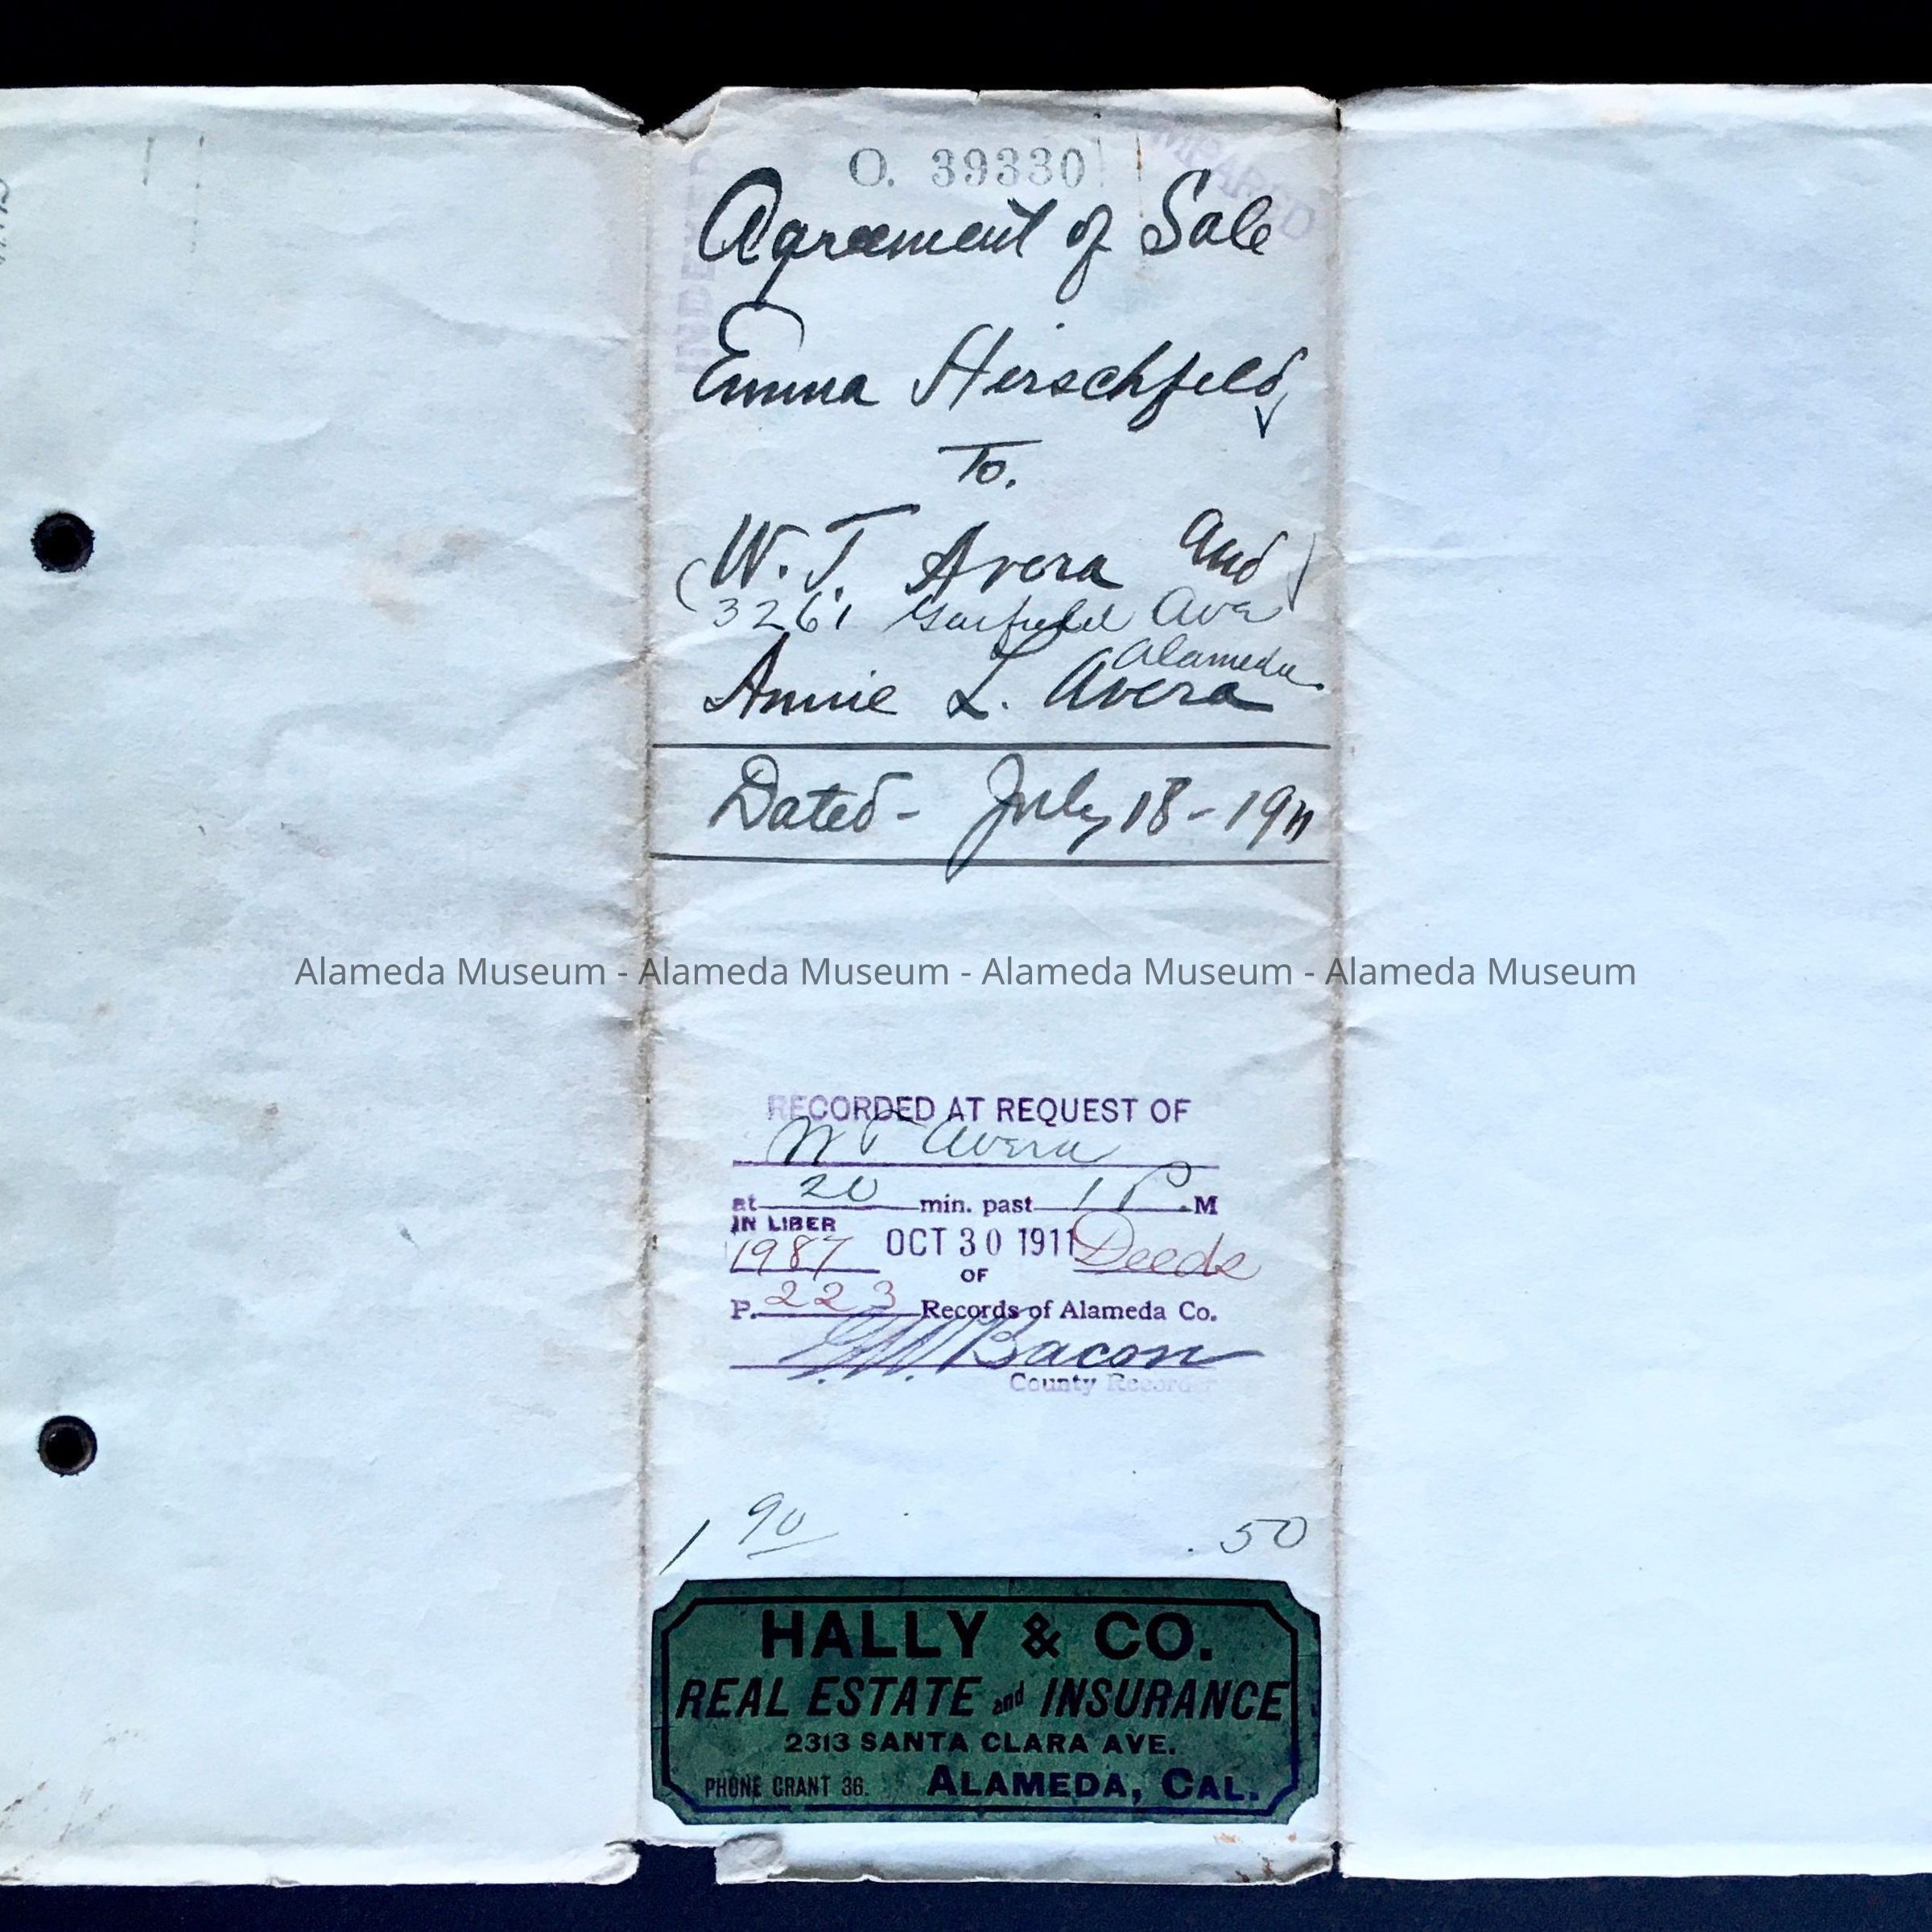 O. 39330
INDEXED
COMPARED
Agreement of Sale
Emma Hirschfeld
To.
W. T. Avera and
3261 Garfield Ave
Alameda
Annie L. Avera
Dated - July 18 - 1911
Alameda Museum - Alameda Museum - Alameda Museum - Alameda Museum
RECORDED AT REQUEST OF
W T Avera
at 20 min. past 1 P.M
IN LIBER
1987 OCT 30 1911 Deeds
OF
P. 223 Records of Alameda Co.
G. W. Bacon
County Recorder
1 90 .50
HALLY & CO.
REAL ESTATE and INSURANCE
2313 SANTA CLARA AVE.
PHONE GRANT 36. ALAMEDA, CAL.